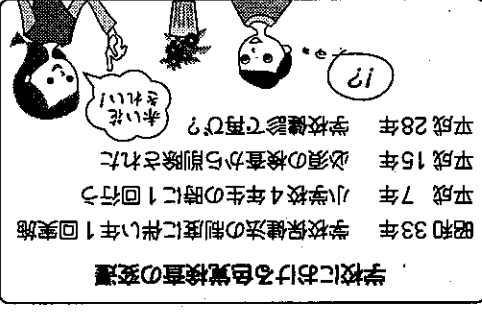 学校における色覚検査の変遷
昭和33年 学校保健法の制度に伴い年1回実施
平成 7年 小学校4年生の時に1回行う
平成15年 必須の検査から削除された
平成28年 学校健診で再び?
赤い花
きれい!
!?